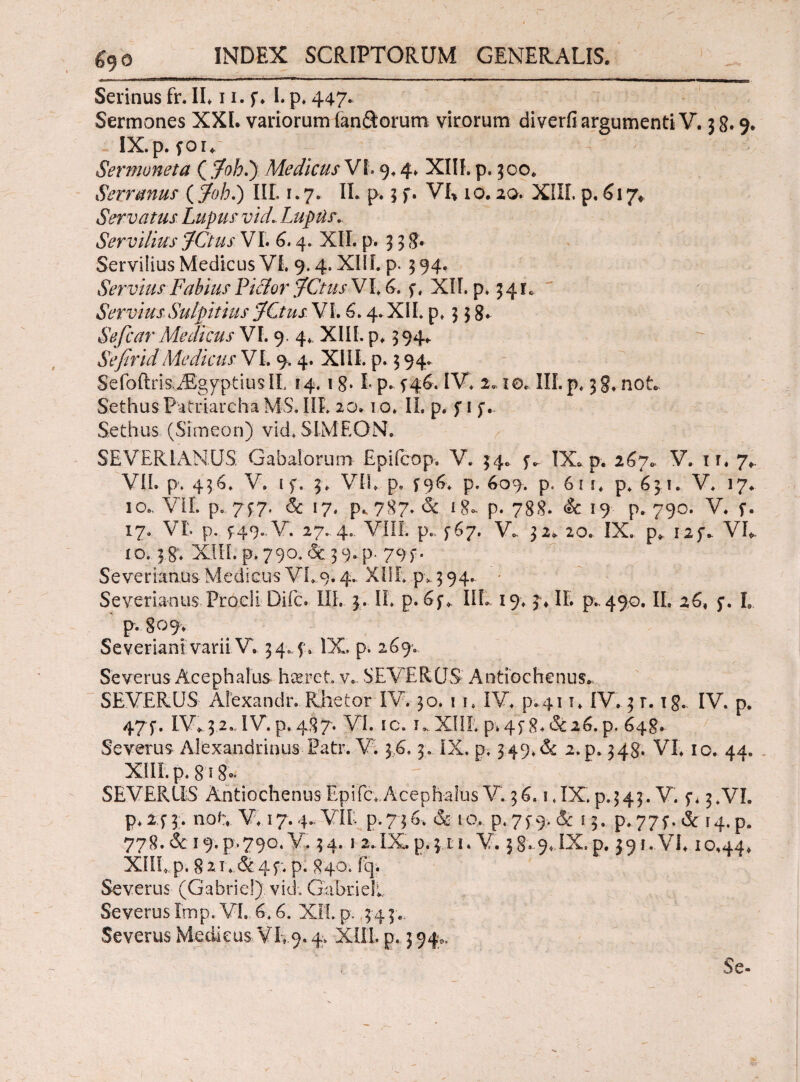 690 INDEX SCRIPTORUM GENERALIS.
Serinus fr. II. 11. 5. I. p. 447.
Sermones XXI. variorum ſanctorum virorum diverſi argumenti V. 38. 9.
IX. p. 501.
Sermoneta (Joh.) Medicus VI. 9. 4. XIII. p. 300.
Serranus (Joh.) III. 1. 7. II. p. 35. VI. 10. 20. XIII. p. 617.
Servatus Lupus vid. Lupus.
Servilius JCtus VI. 6. 4. XII. p. 338.
Servilius Medicus VI. 9. 4. XIII. p. 394.
Servius Fabius Pictor JCtus VI. 6. 5. XII. p. 341.
Servius Sulpitius JCtus VI. 6. 4. XII. p. 338.
Seſcar Medicus VI. 9. 4. XIII. p. 394.
Seſirid Medicus VI. 9. 4. XIII. p. 394.
Seſoſtris Ægyptius II. 14. 18. I. p. 546. IV. 2. 10. III. p. 38. not.
Sethus Patriarcha MS. III. 20. 10. II. p. 515.
Sethus (Simeon) vid. SIMEON.
SEVERIANUS Gabalorum Epiſcop. V. 34. 5. IX. p. 267. V. 11. 7.
VII. p. 436. V. 15. 3. VII. p. 596. p. 609. p. 611. p. 631. V. 17.
10. VII. p. 757. & 17. p. 787. & 18. p. 788. & 19 p. 790. V. 5.
17. VI. p. 549. V. 27. 4. VIII. p. 567. V. 32. 20. IX. p. 125. VI.
10. 38. XIII. p. 790. & 39. p. 795.
Severianus Medicus VI. 9. 4. XIII. p. 394.
Severianus Procli Diſc. III. 3. II. p. 65. III. 19. 3. II. p. 490. II. 26. 5. I.
p. 809.
Severiani varii V. 34. 5. IX. p. 269.
Severus Acephalus hæret. v. SEVERUS Antiochenus.
SEVERUS Alexandr. Rhetor IV. 30. 11. IV. p. 411. IV. 31. 18. IV. p.
475. IV. 32. IV. p. 487. VI. 10. 1. XIII. p. 458. & 26. p. 648.
Severus Alexandrinus Patr. V. 36. 3. IX. p. 349. & 2. p. 348. VI. 10. 44.
XIII. p. 818.
SEVERUS Antiochenus Epiſc. Acephalus V. 36. 1. IX. p. 343. V. 5. 3. VI.
p. 253. not. V. 17. 4. VII. p. 736. & 10. p. 759. & 13. p. 775. & 14. p.
778. & 19. p. 790. V. 34. 12. IX. p. 311. V. 38. 9. IX. p. 391. VI. 10,44.
XIII. p. 821. & 45. p. 840. ſq.
Severus (Gabriel) vid. Gabriel.
Severus Imp. VI. 6. 6. XII. p. 343.
Severus Medicus VI. 9. 4. XIII. p. 394.
Se-